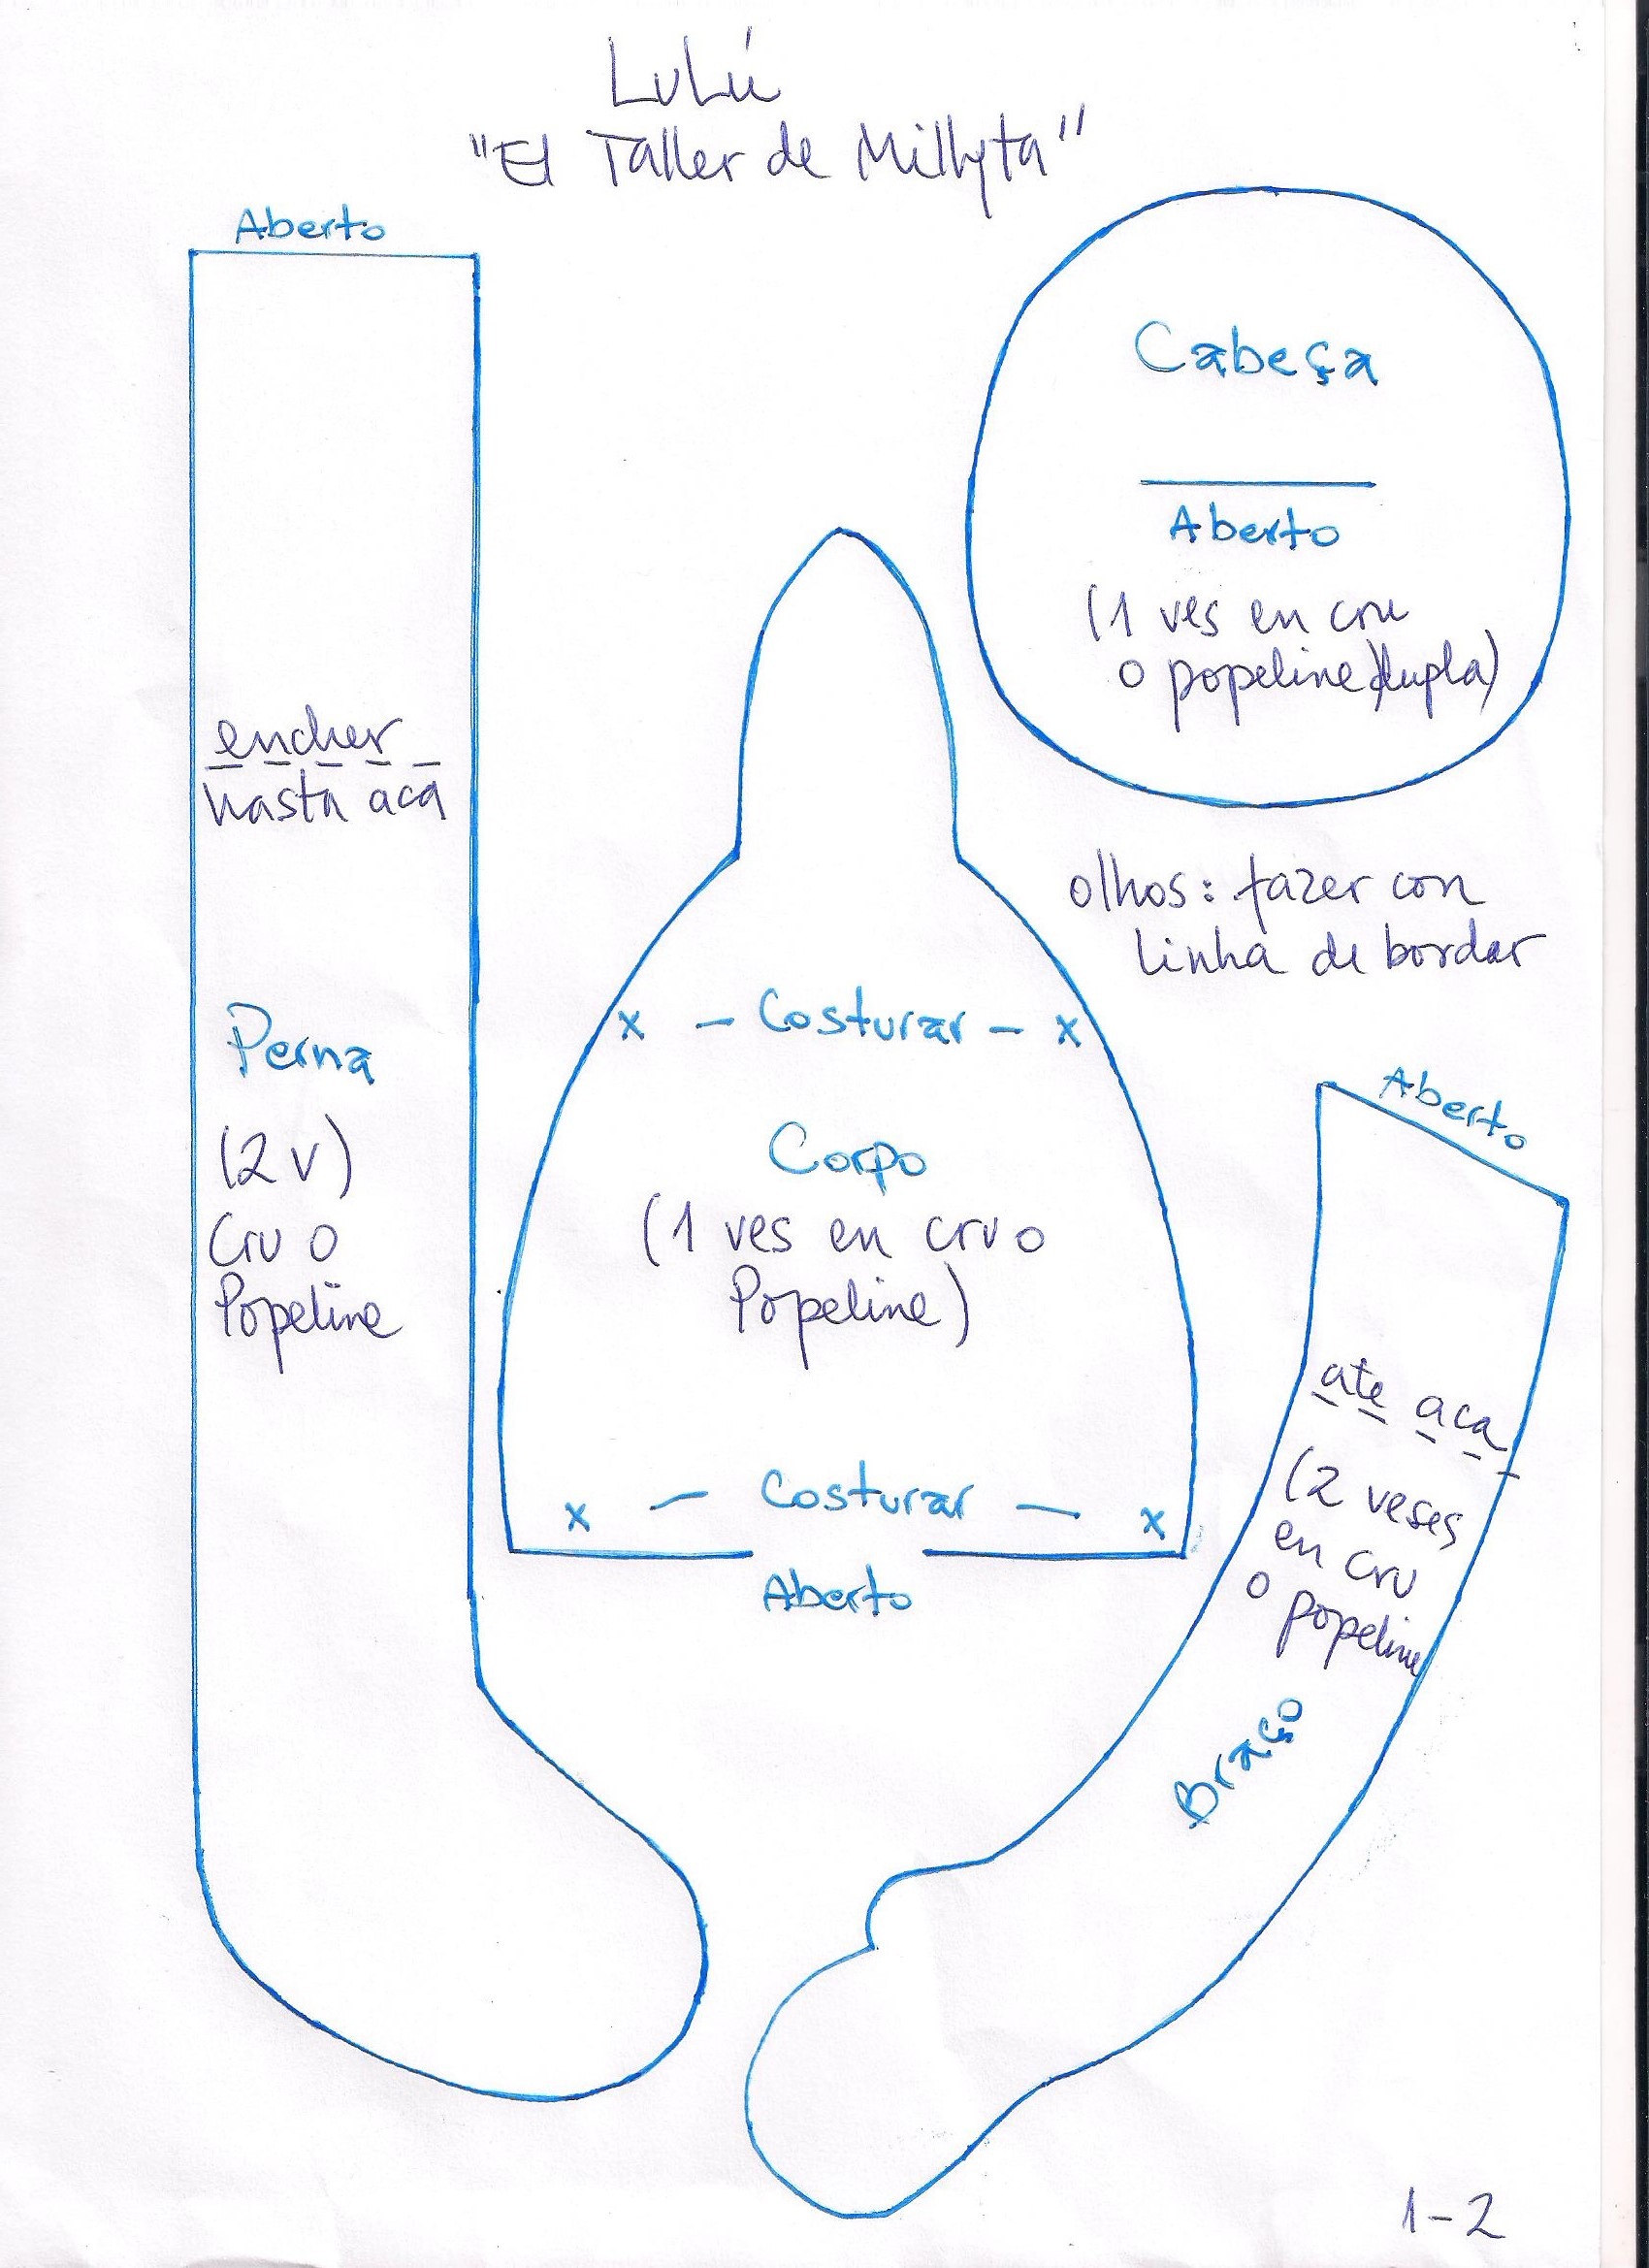 LuLú
"El Taller de Millyta"
Aberto
encher
hasta aca
Perna
(2 v)
Cru o
Popeline
Cabeça
Aberto
(1 ves en cru
o popeline)dupla)
olhos: fazer con
linha de bordar
x - Costurar - x
Corpo
(1 ves en cru o
Popeline)
x - Costurar - x
Aberto
Aberto
ate aca
(2 veses
en cru
o popeline
Braço
1-2